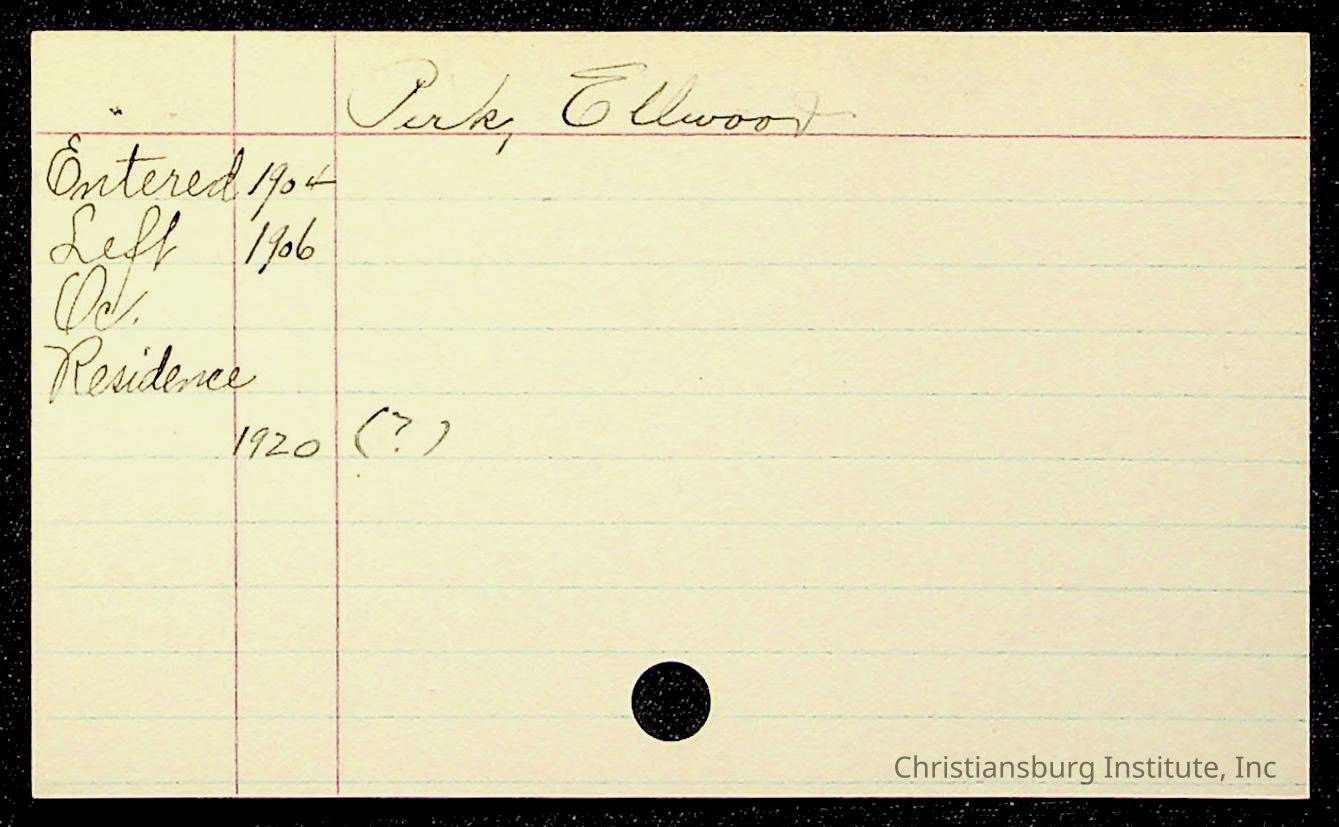 Perk, Ellwood
Entered 1904
Left 1906
Oc.
Residence
1920 (?)
Christiansburg Institute, Inc